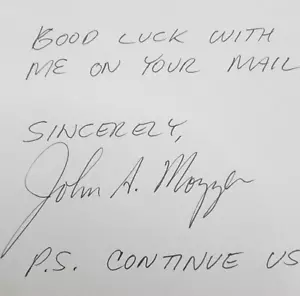 BOOD LUCK WITH
ME ON YOUR MAIL
SINCERELY,
John A. Mozzer
P.S. CONTINUE US